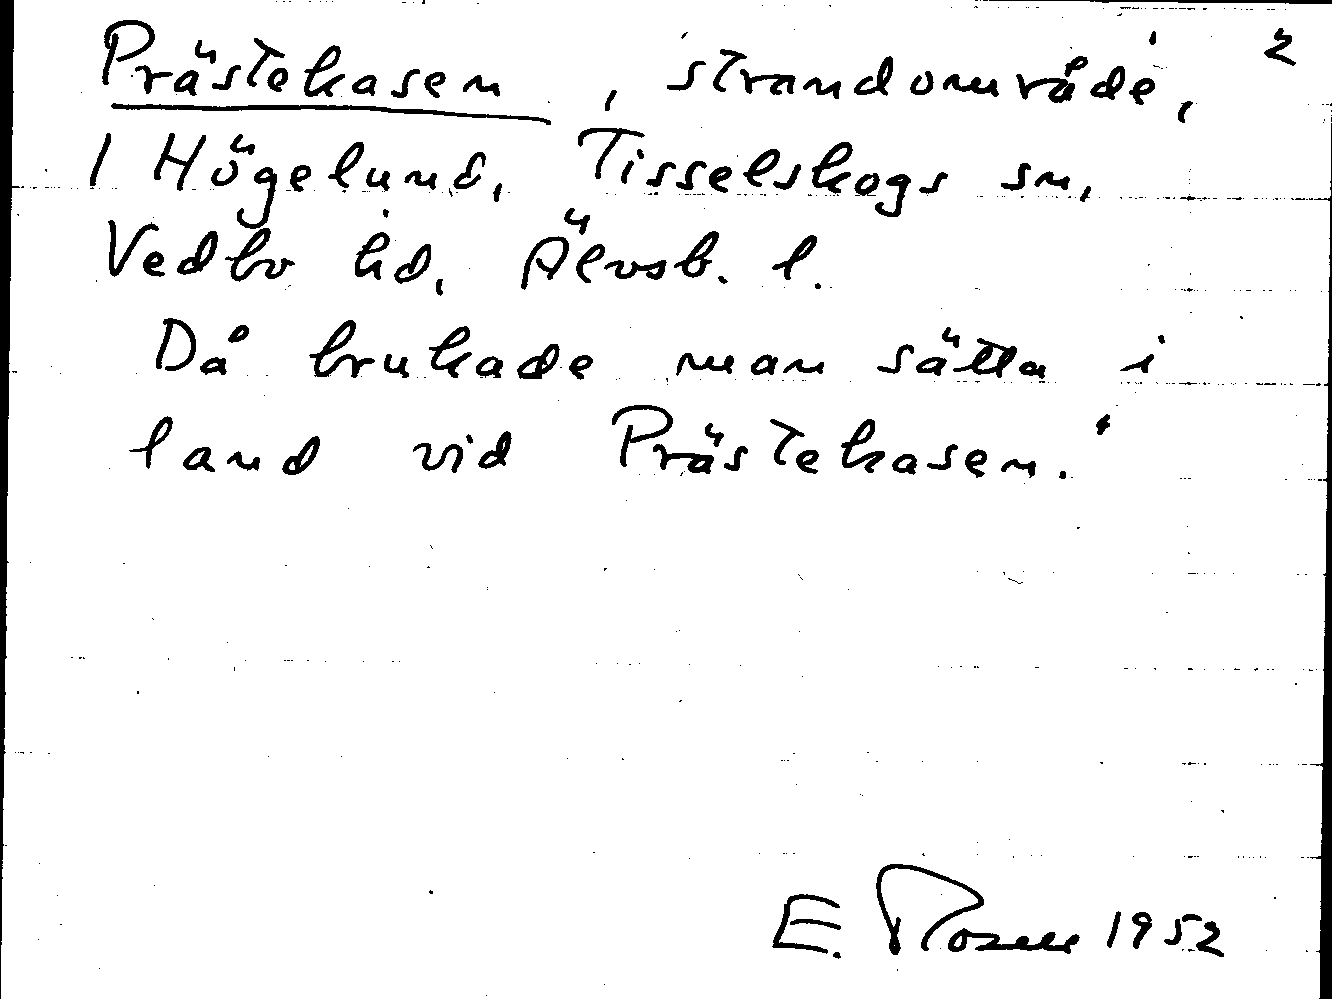 2
Prästekasen, strandområde,
1 Högelund, Tisselskogs sn,
Vedbo hd, Älvsb. l.
Då brukade man sätta i
land vid Prästekasen."
E. Rosell 1952